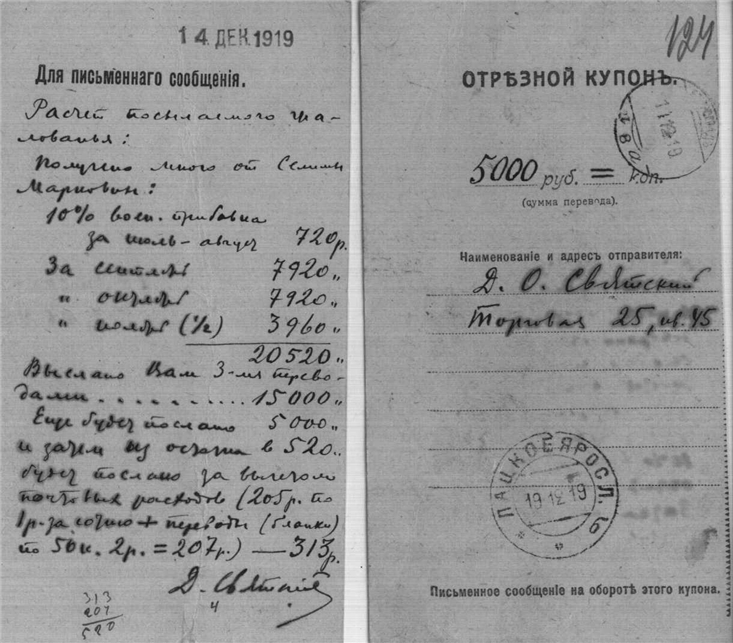 14 ДЕК. 1919
Для письменнаго сообщенія.
Расчет посылаемого жа-
лованья:
Получено мною от
Марковны:
10% воен. прибавка
за июль-август 720 р.
За сентябрь 7920 „
„ октябрь 7920 „
„ ноябрь (1/2) 3960 „
20520 „
Выслано Вам 3-мя перево-
дами . . . . . . . . . . 15000 „
Еще будет послано 5000 „
и затем из остатка в 520 „
будет послано за вычетом
почтовых расходов (205 р. по
1 р. за сотню + переводы (бланки)
по 50 к. 2 р. = 207 р.) — 313 р.
Д. Святский
313
207
520
124
ОТРѢЗНОЙ КУПОНЪ.
11 12 19
5000 руб. = коп.
(сумма перевода).
Наименованіе и адресъ отправителя:
Д. О. Святский
Торговая 25, кв. 45
ПАЦКОЕ ЯРОСЛ. Г.
19 12 19
Письменное сообщеніе на оборотѣ этого купона.